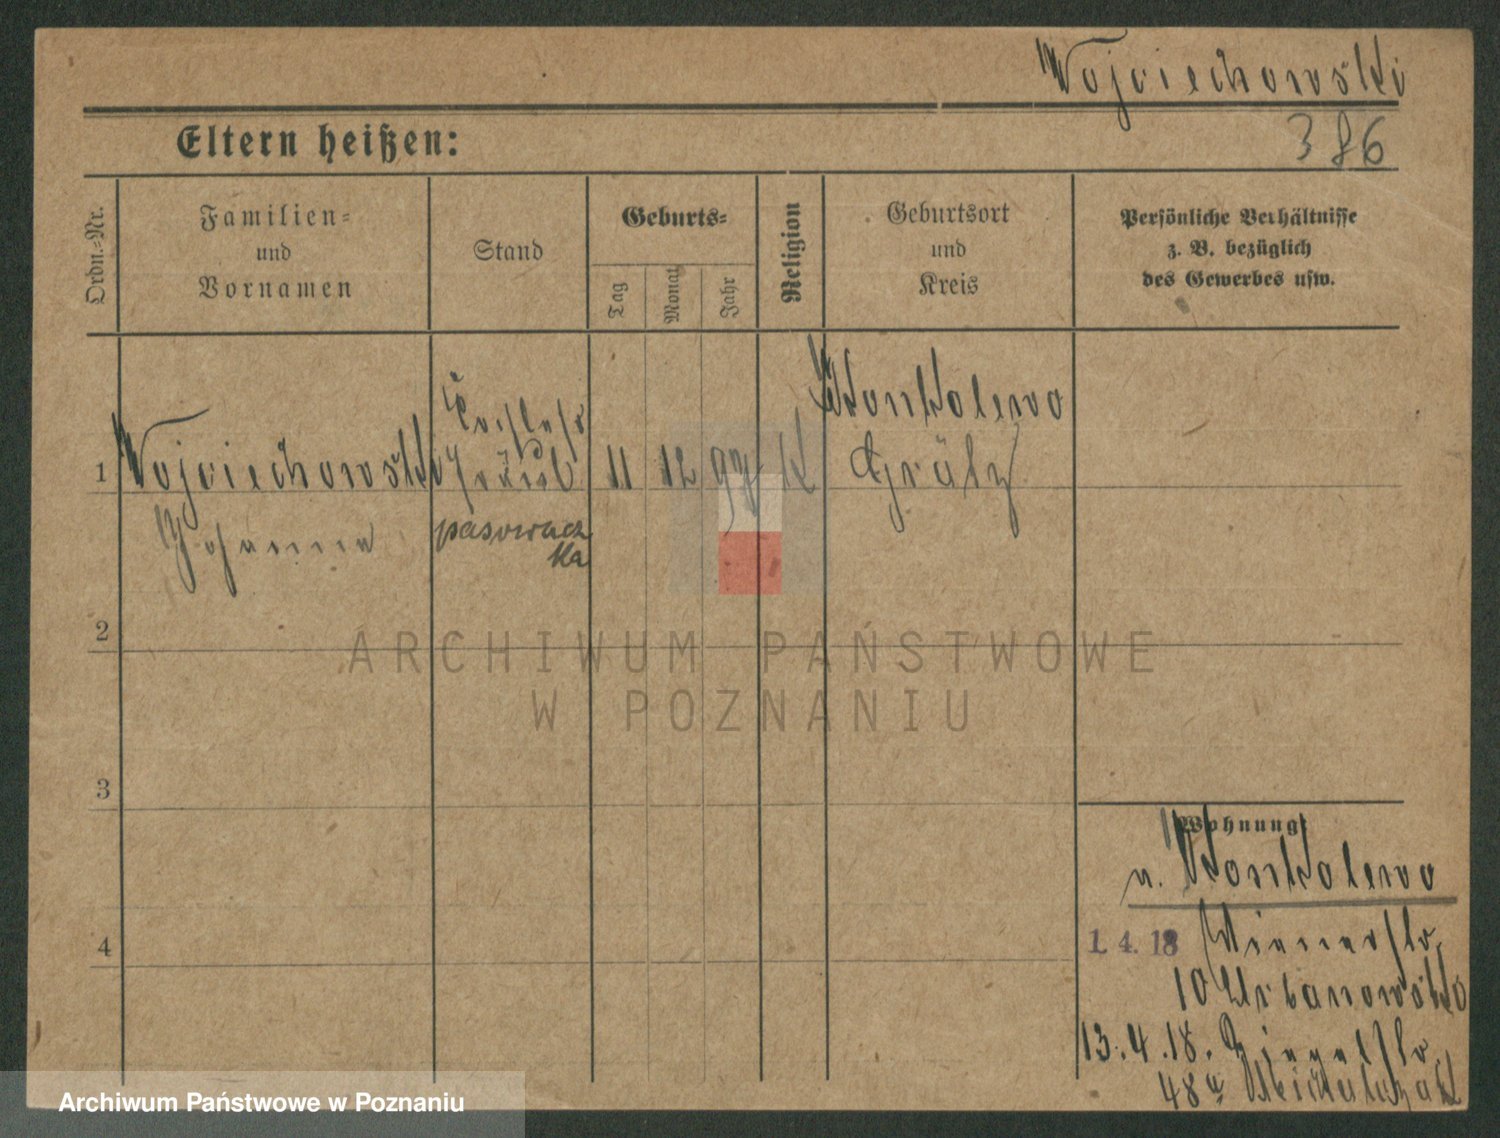 Wojciechowski
Eltern heißen:
386
Ordn.=Nr.
Familien=
und
Vornamen
Stand
Geburts=
Tag
Monat
Jahr
Religion
Geburtsort
und
Kreis
Persönliche Verhältnisse
z. B. bezüglich
des Gewerbes usw.
1
Wojciechowski
Johanna
Fräul
pasowacz
ka
11
12
97
K
Wonsolewo
Grätz
2
3
4
Wohnung:
v. Wonsolewo
1. 4. 18 Wienerstr.
10 Urbanowska
13.4.18. Ziegelstr.
48a
ARCHIWUM PAŃSTWOWE
W POZNANIU
Archiwum Państwowe w Poznaniu